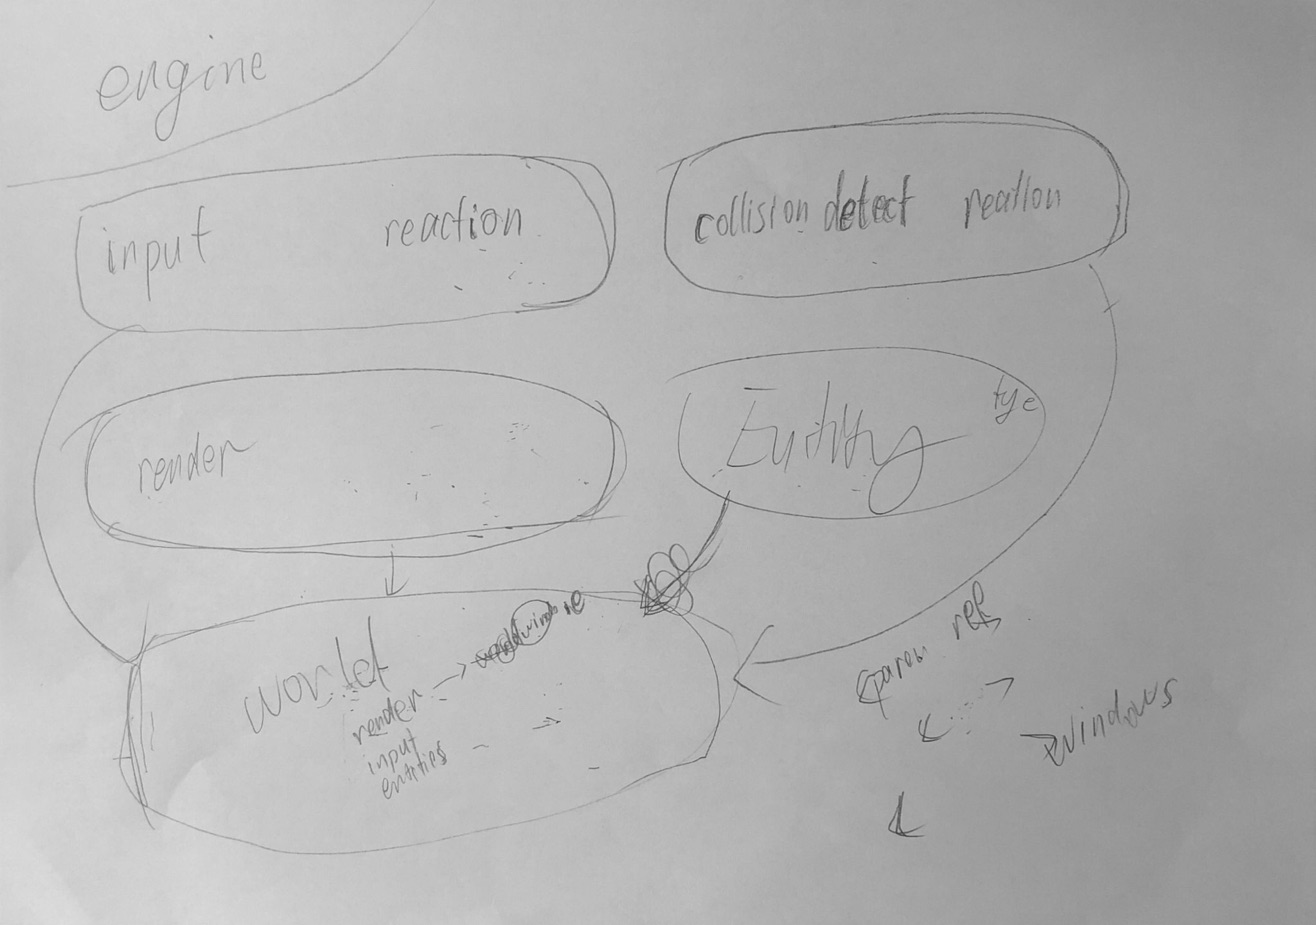 engine
input reaction
collision detect reation
render
Entity
world
render →
input
entities
ref
windows